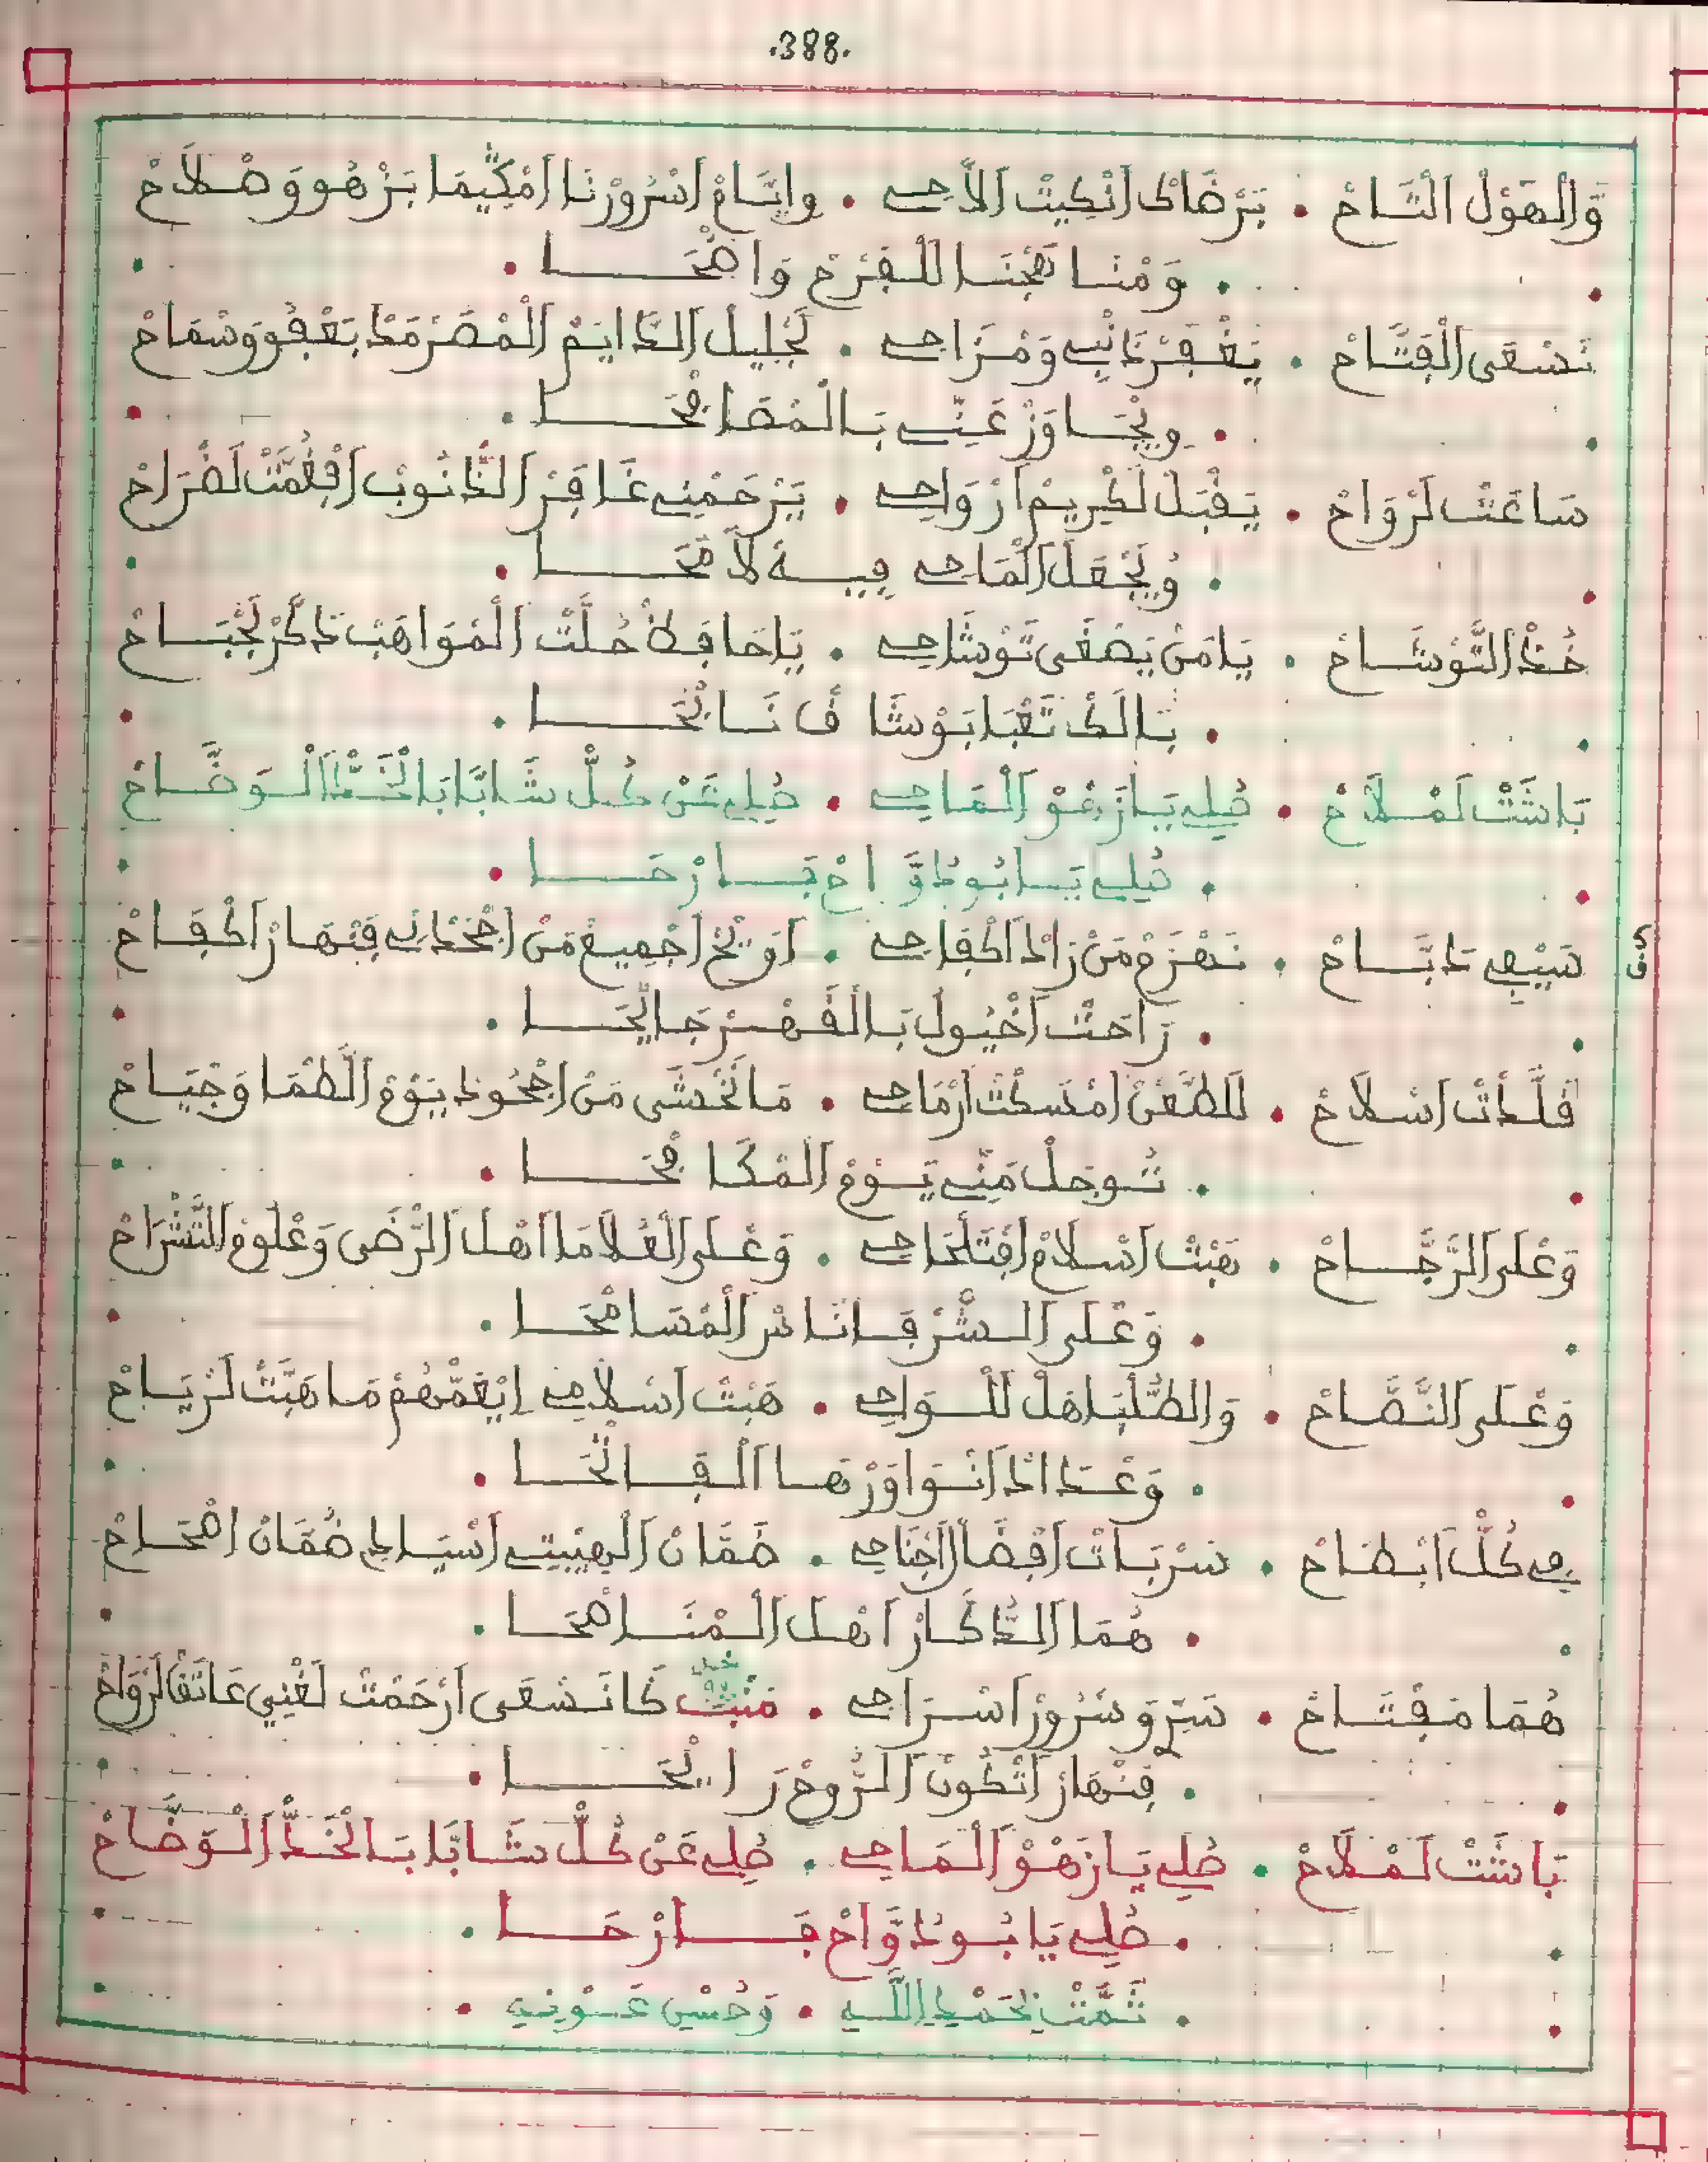 .388.
وَالْهَوْلْ اَنْتَاحْ • بَرْضَاكْ اَنْكِيتْ اَلاَّحِي • وايتَاعْ اَسْرُورْنَا اَمْكِيمَا بَزْهُو وَصْلاَحْ
• وَمْنَا هَجْنَا لَلْفَرْحْ وَاضْحَا •
نَسْعَى الْفَتَّاحْ • يَغْفَرْ ذَنْبِي وَمْزَاحِي • لَجْلِيلْ اَلدَّايَمْ اَلْمْصَرْمَدْ بَعْفُو وَسْمَاحْ
• وِيْجَاوَزْ عَنِّي بَالْمْصَافْحَا •
سَاعَتْ لَرْوَاحْ • يَقْبَلْ لَكْرِيمْ اَرْوَاحِي • يَرْحَمْنِي غَافَرْ اَلذّْنُوبْ اَفْغُمَّتْ لَضْرَاحْ
• وُيَجْعَلْ اَلْمَاحِي فِيهْ لاَمْحَا •
خُذْ اَلتَّوْشَاحْ • يَا مَنْ يَصْغَى تَوْشَاحِي • يَاحَافَظْ حُلَّتْ اَلْمْوَاهَبْ ذَكَّرْ لَجْبَاحْ
• بَالَكْ تَعْبَا بَوْشَاقْ نَابْحَا •
بَاشَتْ لَمْلاَحْ • صْلِي يَازَهْوْ اَلْمَاحِي • صْلِي عَنْ كُلّْ شَابَّا بَالْخَدّْ اَلْوَضَّاحْ
• صْلِي يَا بُودُوَّاحْ فَارْحَا •
سَيْفِي دَبَّاحْ • نَهْزَمْ مَنْ زَادْ اَكْفَاحِي • اَوِيْحْ اَجْمِيعْ مَنْ اَجْحَدْنِي فِنْهَارْ اَكْفَاحْ
كف
• رَاحَتْ اَخْيُولْ بَالْقَهْرْ جَايْحَا •
قَلَّدْتْ اَسْلاَحْ • لَلطّْعَنْ اَمْسَكْتْ اَرْمَاحِي • مَا نَخْشَى مَنْ اَجْحُودْ يَوْمْ اَلطّْمَا وَجْيَاحْ
• تُوجَلْ مَنِّي يَوْمْ اَلمْكَافْحَا •
وَعْلَى الرَّجَّاحْ • هَبْتْ اَسْلاَمْ اَفْتَلْحَاحِي • وَعْلَى اَلْعُلاَمَا اَهْلْ اَلرّْضَى وَعْلُومْ اَلتَّشْرَاحْ
• وَعْلَى اَلشُّرْفَا نَاسْ اَلْمْسَامْحَا •
وَعْلَى اَلنَّصَّاحْ • وَالطُّلْبَا هَلْ لَلْوَاحِي • هَبْتْ اَسْلاَمِي اِيْعَمّْهُمْ مَا هَبَّتْ لَرْيَاحْ
• وَعْدَادْ اَنْوَاوَرْهَا اَلْفَالْحَا •
فِي كُلّْ اَبْطَاحْ • سَرْبَاتْ اَفْضَالْ اَجْنَاحِي • ضَمَّانْ اَلْهِيبْتِي اَسْيَادِي ضُمَّانْ اَصْحَاحْ
• هُمَا اَلذُّكَارْ اَهْلْ اَلْمْنَاصْحَا •
هُمَا مَفْتَاحْ • سَرِّ وَسْرُورْ اَسْرَاحِي • مَنْبَتْ كَانَسْعَى اَرْحَمْتْ لَغْنِي عَاتَقْ لَرْوَاحْ
• فِنْهَارْ اَتْكُونْ اَلرُّوحْ رَايْحَا •
بَاشَتْ لَمْلاَحْ • صْلِي يَازَهْوْ اَلْمَاحِي • صْلِي عَنْ كُلّْ شَابَّا بَالْخَدّْ اَلْوَضَّاحْ
• صْلِي يَا بُودُوَّاحْ فَارْحَا •
• تَمَّتْ بَحَمْدِ اِللَّهِ • وَحُسْنِ عَوْنِهِ •